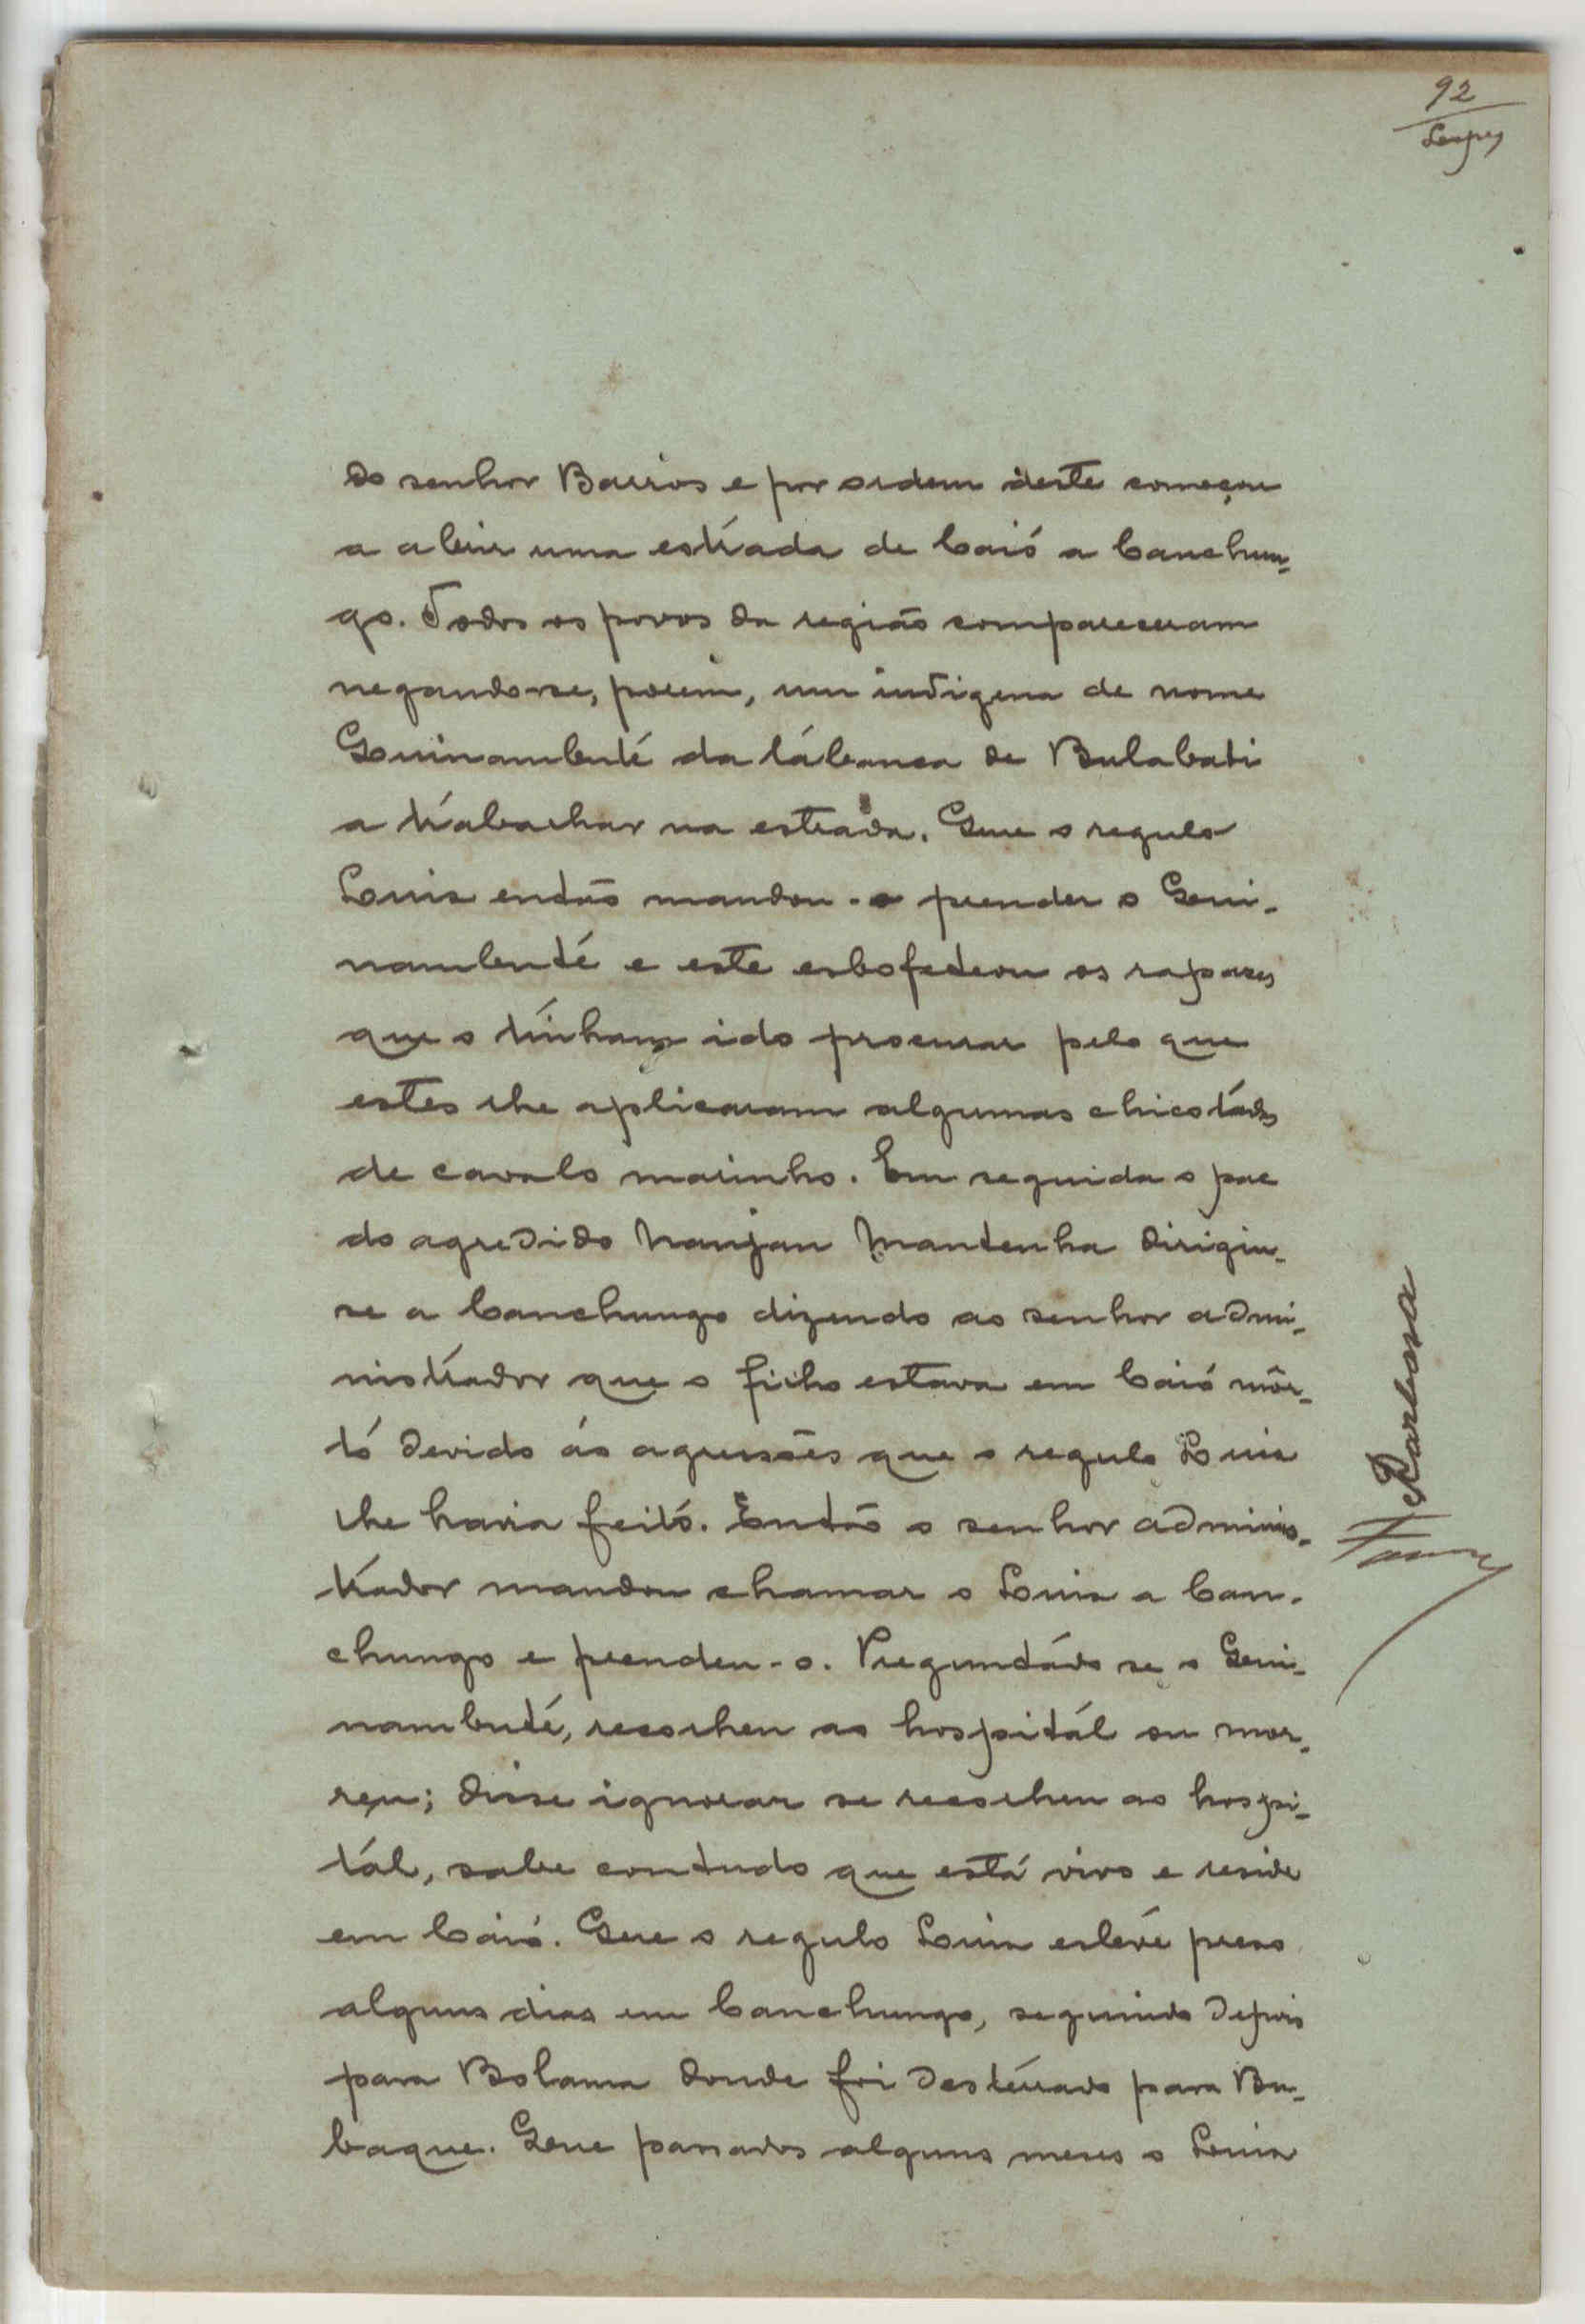 92
Lopes
do senhor Barros e por ordem deste começou
a abrir uma estráda de Caió a Canchun-
go. Todos os povos da região compareceram
negando-se, porem, um indigena de nome
Quinambuté da tábanca de Bulabati
a trabalhar na estrada. Que o regulo
Luis então mandou - o prender o Qui-
nambuté e este esbofeteou os rapazes
que o tinham ido procurar pelo que
estes lhe aplicaram algumas chicotádas
de cavalo marinho. Em seguida o pae
do agredido Nanjan Mantenha dirigiu-
se a Canchungo dizendo ao senhor admi-
nistrador que o filho estava em Caió môr-
tó devido ás agressões que o regulo Luis
lhe havia feitó. Então o senhor adminis-
trador mandou chamar o Luis a Can-
chungo e prendeu-o. Preguntádo se o Qui-
nambuté, recolheu ao hospitál ou mor-
reu; disse ignorar se recolheu ao hospi-
tál, sabe contudo que está vivo e reside
em Caió. Que o regulo Luis esteve preso
alguns dias em Canchungo, seguindo depois
para Bolama donde foi destérrado para Bu-
baque. Que passados alguns meses o Luis
Barbosa